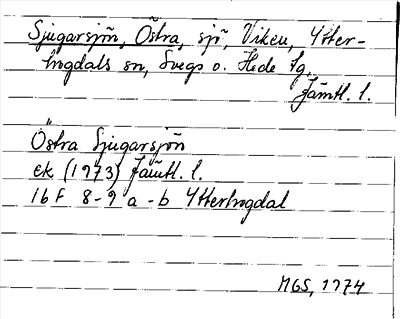 Sjugarsjön, Östra, sjö, Viken, Ytter-
hogdals sn, Svegs o. Hede tg,
Jämtl. l.
Östra Sjugarsjön
ek (1973) Jämtl. l.
16 F 8-9 a-b Ytterhogdal
MGS, 1974